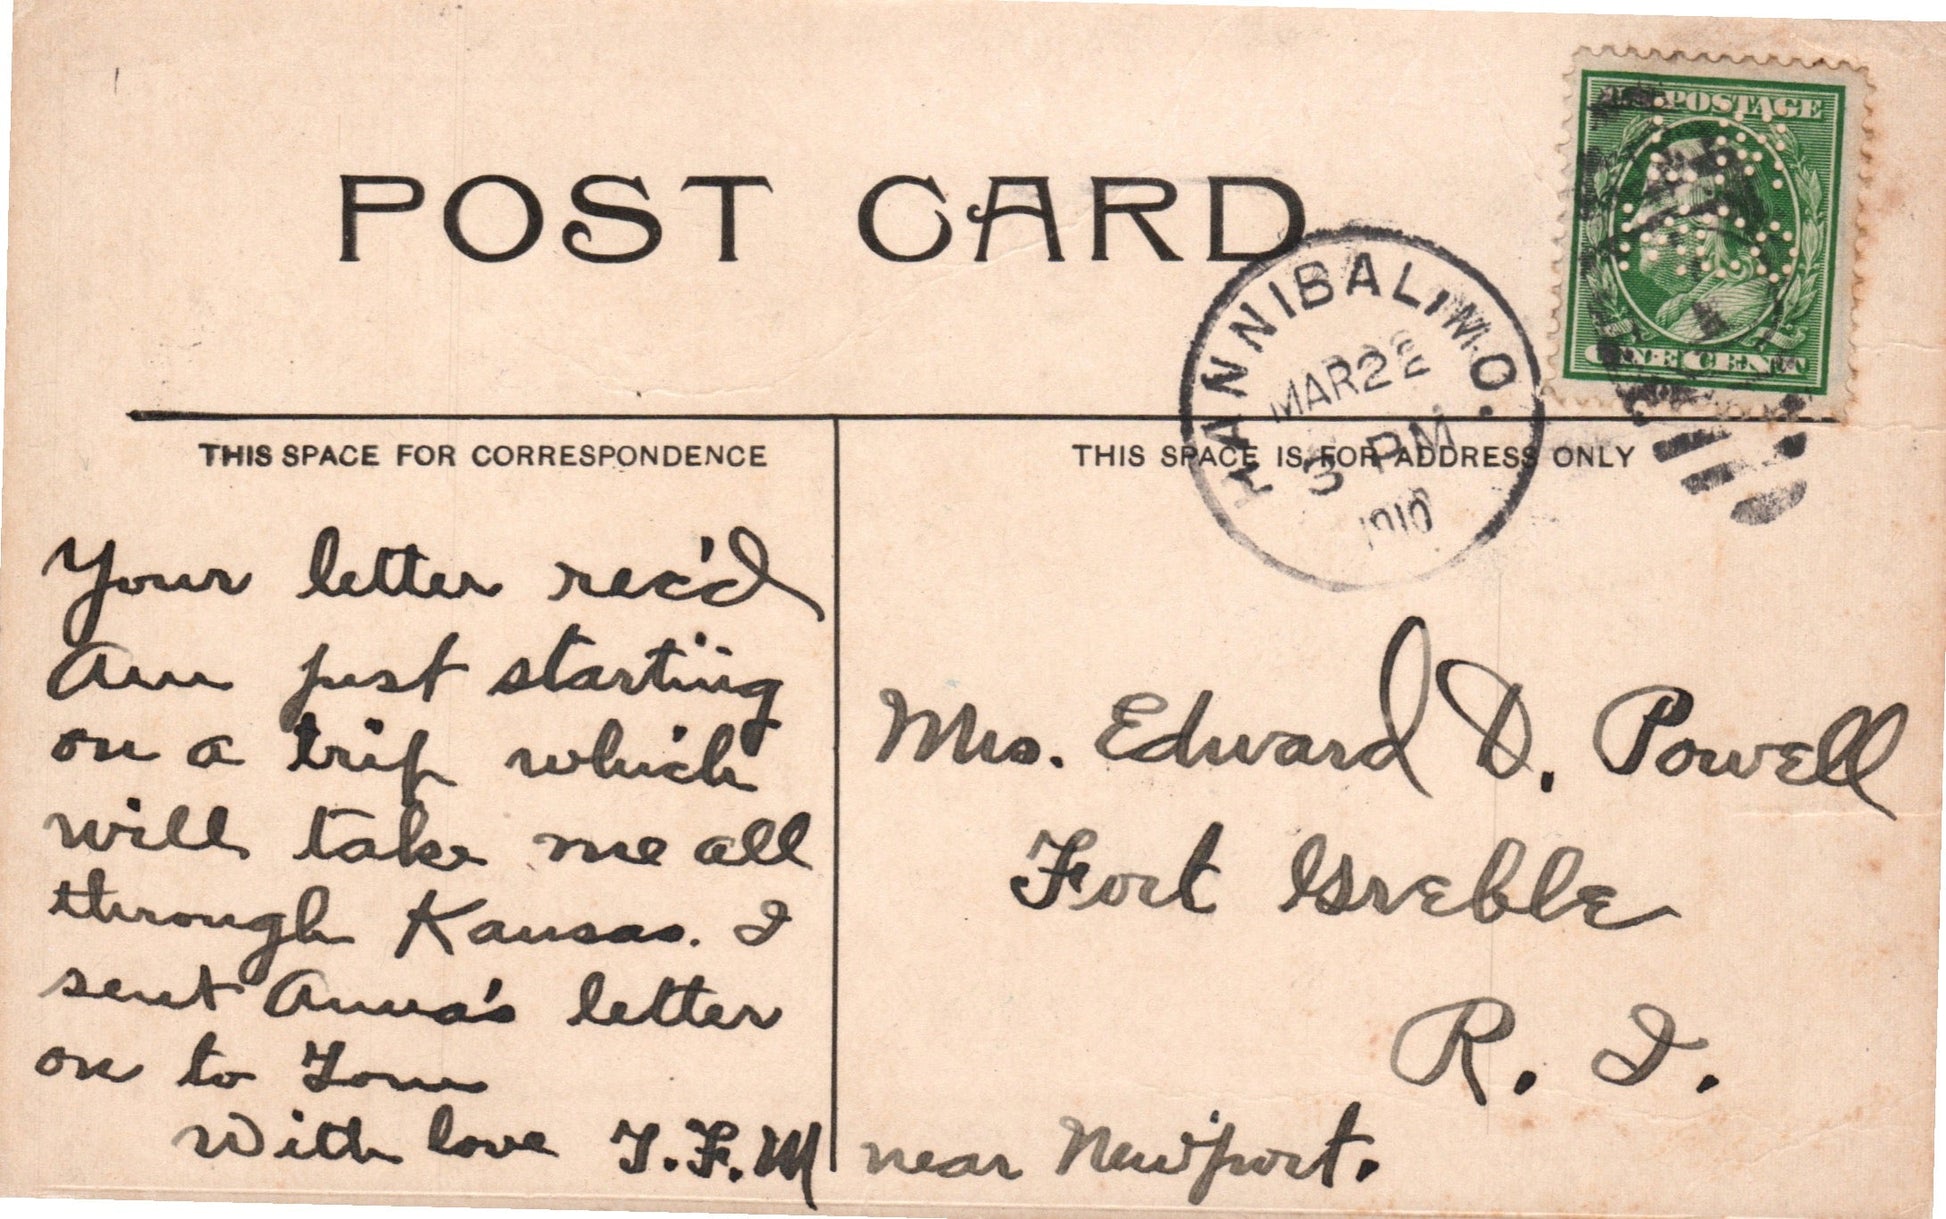 POST CARD
POSTAGE
ONE CENT
HANNIBAL, MO.
MAR 22
3 PM
1910
THIS SPACE FOR CORRESPONDENCE
THIS SPACE IS FOR ADDRESS ONLY
Your letter rec'd
Am just starting
on a trip which
will take me all
through Kansas. I
sent Anna's letter
on to Tom
With love T.F.M
Mrs. Edward D. Powell
Fort Greble
R. I.
near Newport.